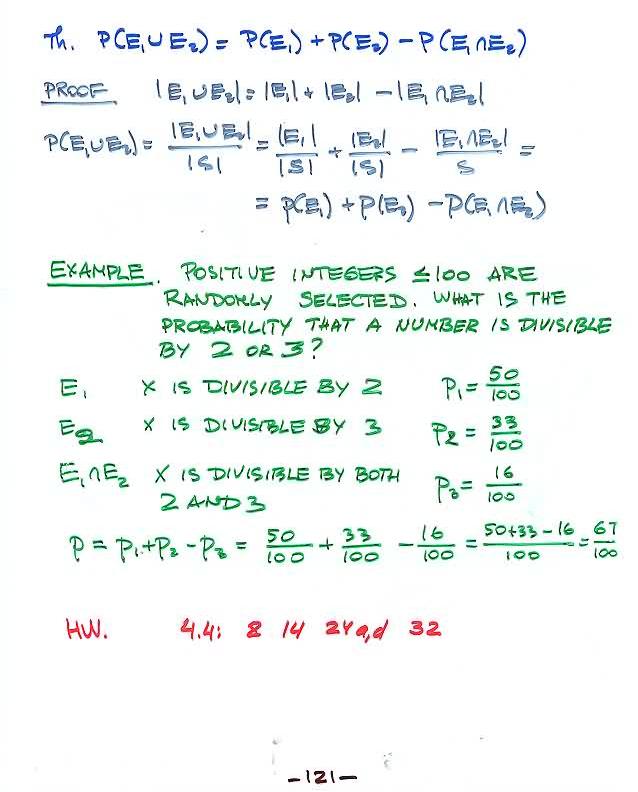 Th. P(E₁∪E₂) = P(E₁) + P(E₂) − P(E₁∩E₂)
PROOF |E₁∪E₂| = |E₁| + |E₂| − |E₁∩E₂|
P(E₁∪E₂) = |E₁∪E₂|/|S| = |E₁|/|S| + |E₂|/|S| − |E₁∩E₂|/S =
= P(E₁) + P(E₂) − P(E₁∩E₂)
EXAMPLE. POSITIVE INTEGERS ≤100 ARE
RANDOMLY SELECTED. WHAT IS THE
PROBABILITY THAT A NUMBER IS DIVISIBLE
BY 2 OR 3?
E₁ X IS DIVISIBLE BY 2 P₁ = 50/100
E₂ X IS DIVISIBLE BY 3 P₂ = 33/100
E₁∩E₂ X IS DIVISIBLE BY BOTH P₃ = 16/100
2 AND 3
P = P₁+P₂−P₃ = 50/100 + 33/100 − 16/100 = 50+33−16/100 = 67/100
HW. 4.4: 8 14 24a,d 32
−121−